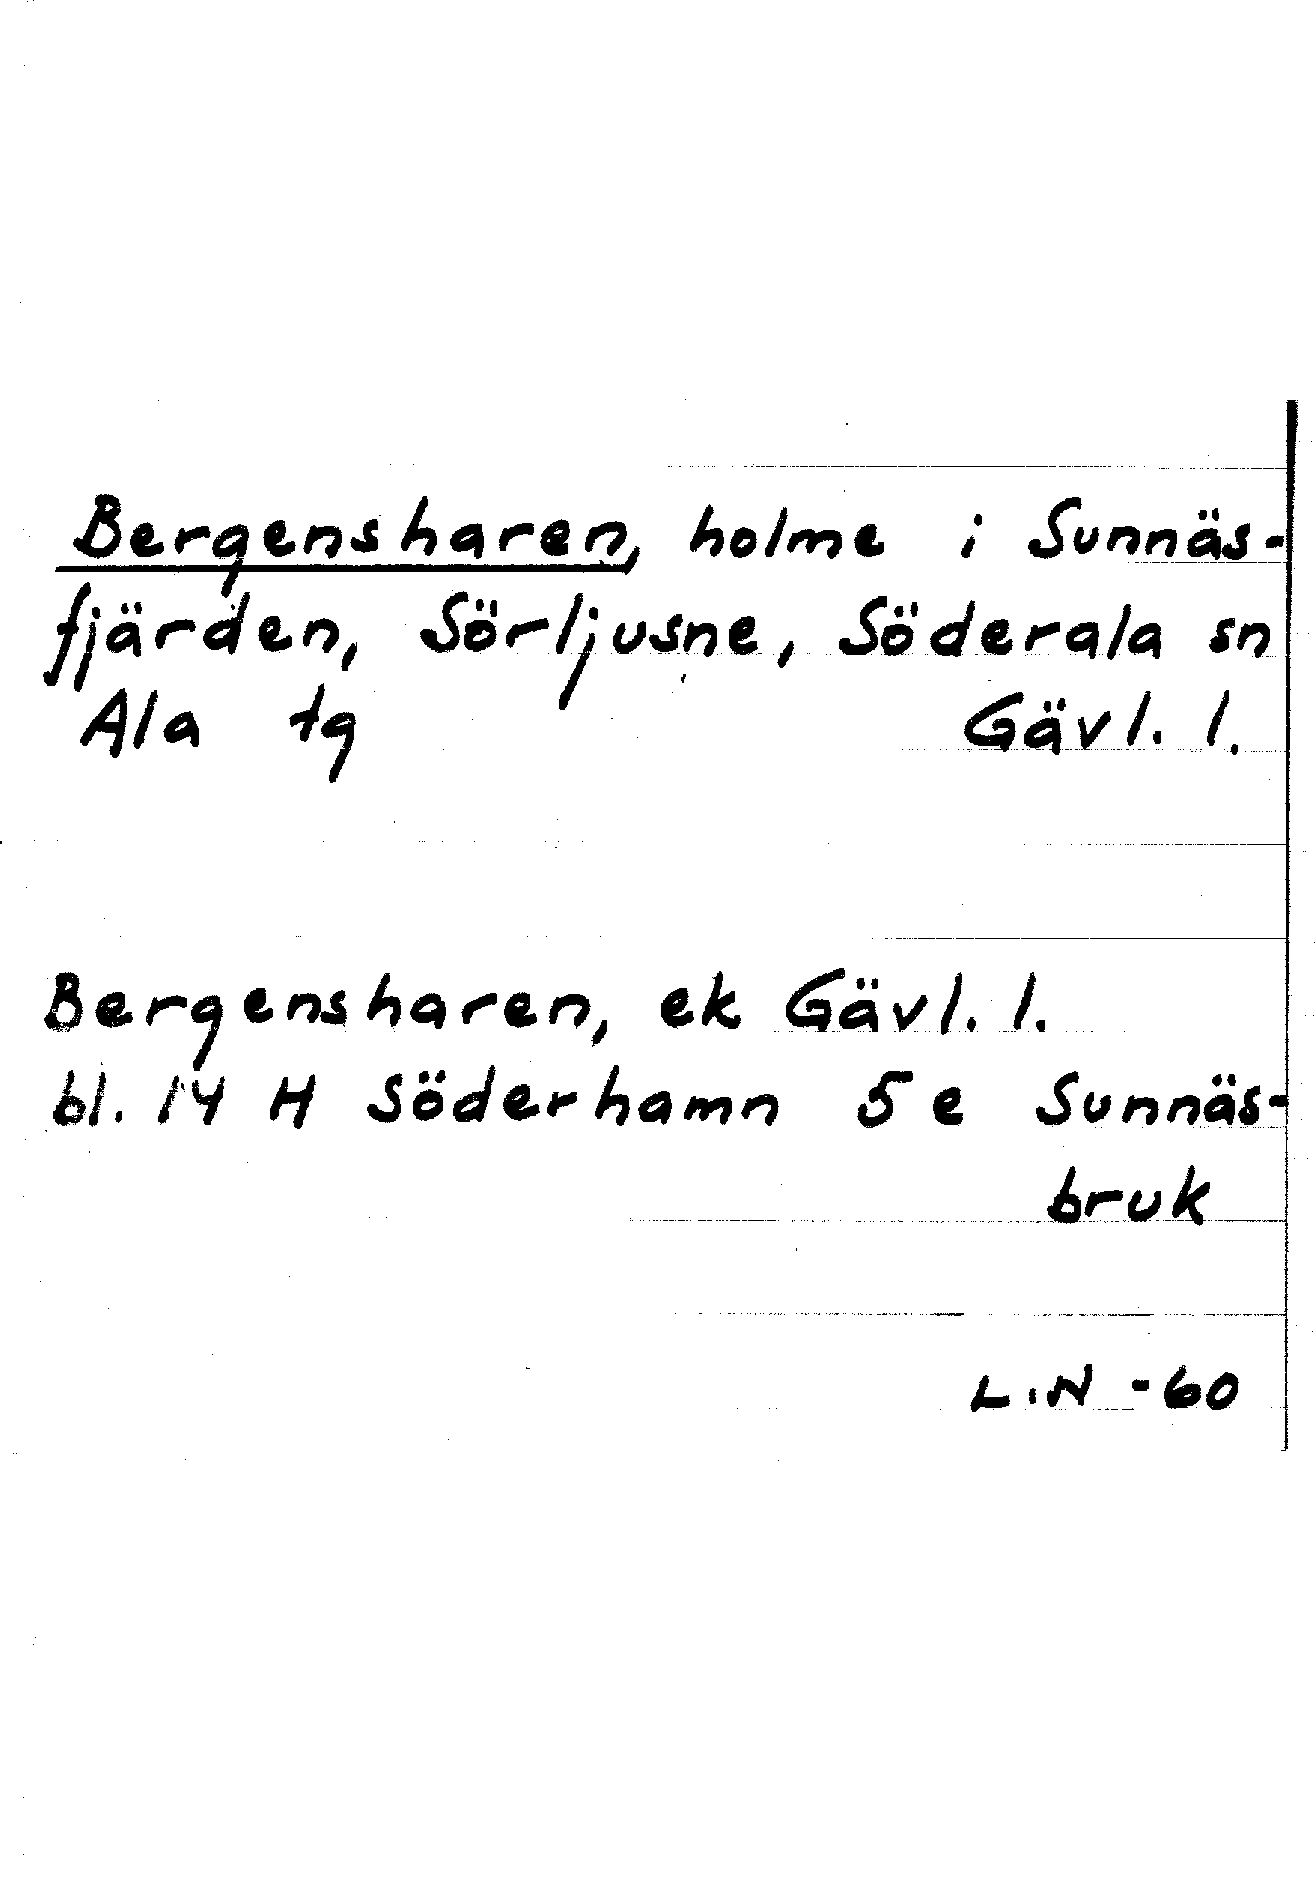 Bergensharen, holme i Sunnäs-
fjärden, Sörljusne, Söderala sn
Ala tg Gävl. l.
Bergensharen, ek Gävl. l.
bl. 14 H Söderhamn 5 e Sunnäs-
bruk
L.N -60